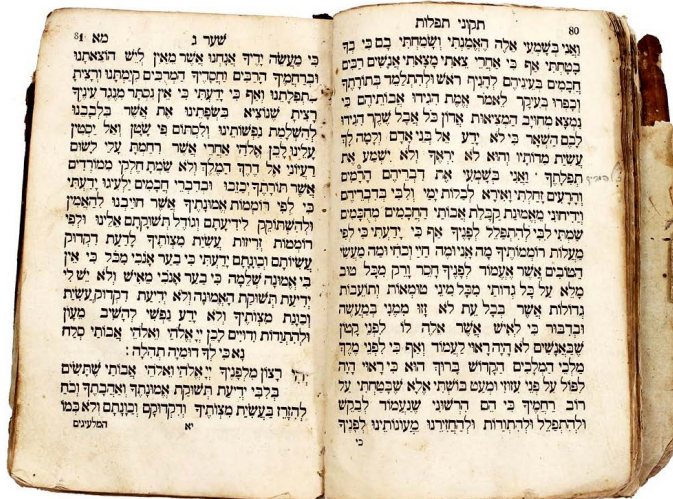 תקוני תפלות
80
ואני בשמעי אלה האמנתי ושמחתי בם כי בך
בטחתי אף כי אחרי צאתי מצאתי אנשים רבים
חכמים בעיניהם להניף ראש ולהתלמד בתורתך
וכפרו בעיקר לאמר אמת הגידו אבותיהם כי
נמצא מחויב המציאות אדון כל אבל שקר הגידו
לכם השאר כי לא ידע אל בני אדם ולמה לך
עשית מדותיו והוא לא יראך ולא ישמע את
תפלתך ואני בשמעי את דבריהם הרמים
והרעים זחלתי ואירא לכלות ימי ולבי בדבריהם
וידיחוני מאמונת קבלת אבותי החכמים מחכמים
שמתי לבי להתפלל לפניך אף כי ידעתי כי לפי
מעלות רוממותיך מה אני ומה חיי וכחי ומה מעשי
הטובים אשר אעמוד לפניך חסר ורק מכל טוב
מלא על כל גדותי מכל מיני טומאות ותועבות
גדולות אשר בכל עת לא זזו ממני במעשה
ובדבור כי לאיש אשר אלה לו לפני קטן
שבאנשים לא היה ראוי לעמוד ואף כי לפני מלך
מלכי המלכים הקדוש ברוך הוא כי ראוי היה
לפול על פני עזותי ומעט בושתי אלא שבטחתי על
רוב רחמיך כי הם הרשוני שנעמוד לבקש
ולהתפלל ולהתודות ולהחזירנו מעונותינו לפניך
כי
שער ג
מא
81
כי מעשה ידיך אנחנו אשר מאין ליש הוצאתנו
וברחמיך הרבים וחסדיך המרבים קימתנו ורצית
תפלתנו ואף כי ידעתי כי אין נסתר מנגד עיניך
רצית שנוציא בשפתינו את אשר בלבבנו
להשלמת נפשותינו ולסתום פי שטן ואל יסטין
עלינו לכן אלהי אחרי אשר רחמת עלי לשום
רעיוני אל דרך המלך ולא שמת חלקי ממורדים
אשר תורתך יבזבזו ובדברי חכמים ילעיגו ידעתי
כי לפי רוממות אמונתך אשר חוייבנו להאמין
ולהשתוקק לידיעתם וגודל תשוקתם אלינו ולפי
רוממות זריזות עשית מצותיך לדעת דקדוק
עשיותם וכונתם ידעתי כי בער אנכי מכל כי אין
בי אמונה שלמה כי בער אנכי מאיש ולא יש לי
ידיעת תשוקת האמונה ולא ידיעת דקדוק עשית
וכונת מצותיך ולא ידע נפשי להשיב מעון
ולהתודות ודויים לכן יי אלהי ואלהי אבותי סלח
נא כי לך דומיה תהלה:
יהי רצון מלפניך יי אלהי ואלהי אבותי שתשים
בלבי ידיעת תשוקת אמונתך ואהבתך וכח
להזהר בעשית מצותיך ודקדוקם וכונתם ולא כמו
יא
המלעיגים